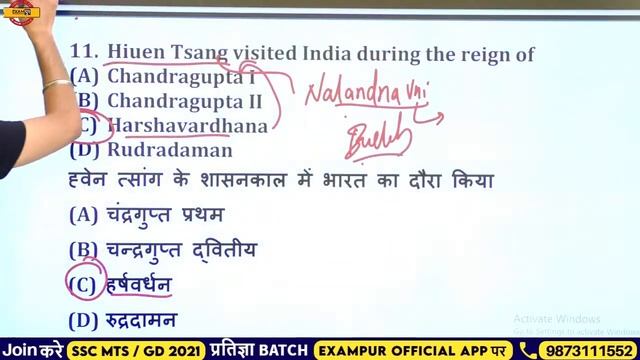 EXAMPUR
11. Hiuen Tsang visited India during the reign of
(A) Chandragupta I
(B) Chandragupta II
(C) Harshavardhana
(D) Rudradaman
Nalandna Uni
Buddh
ह्वेन त्सांग के शासनकाल में भारत का दौरा किया
(A) चंद्रगुप्त प्रथम
(B) चन्द्रगुप्त द्वितीय
(C) हर्षवर्धन
(D) रुद्रदामन
Activate Windows
Go to Settings to activate Windows
Join करे SSC MTS / GD 2021 प्रतिज्ञा BATCH EXAMPUR OFFICIAL APP पर 9873111552